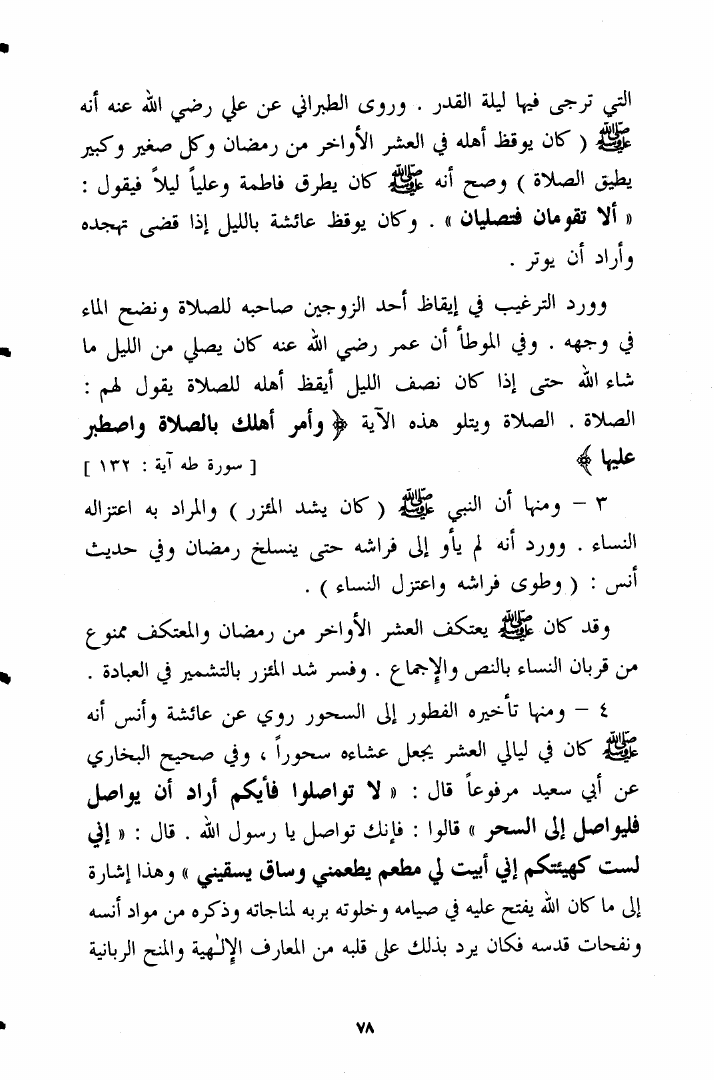 التي ترجى فيها ليلة القدر . وروى الطبراني عن علي رضي الله عنه أنه
ﷺ ( كان يوقظ أهله في العشر الأواخر من رمضان وكل صغير وكبير
يطيق الصلاة ) وصح أنه ﷺ كان يطرق فاطمة وعلياً ليلاً فيقول :
« ألا تقومان فتصليان » . وكان يوقظ عائشة بالليل إذا قضى تهجده
وأراد أن يوتر .
وورد الترغيب في إيقاظ أحد الزوجين صاحبه للصلاة ونضح الماء
في وجهه . وفي الموطأ أن عمر رضي الله عنه كان يصلي من الليل ما
شاء الله حتى إذا كان نصف الليل أيقظ أهله للصلاة يقول لهم :
الصلاة . الصلاة ويتلو هذه الآية ﴿ وأمر أهلك بالصلاة واصطبر
عليها ﴾ [ سورة طه آية : ١٣٢ ]
٣ - ومنها أن النبي ﷺ ( كان يشد المئزر ) والمراد به اعتزاله
النساء . وورد أنه لم يأو إلى فراشه حتى ينسلخ رمضان وفي حديث
أنس : ( وطوى فراشه واعتزل النساء ) .
وقد كان ﷺ يعتكف العشر الأواخر من رمضان والمعتكف ممنوع
من قربان النساء بالنص والإجماع . وفسر شد المئزر بالتشمير في العبادة .
٤ - ومنها تأخيره الفطور إلى السحور روي عن عائشة وأنس أنه
ﷺ كان في ليالي العشر يجعل عشاءه سحوراً ، وفي صحيح البخاري
عن أبي سعيد مرفوعاً قال : « لا تواصلوا فأيكم أراد أن يواصل
فليواصل إلى السحر » قالوا : فإنك تواصل يا رسول الله . قال : « إني
لست كهيئتكم إني أبيت لي مطعم يطعمني وساق يسقيني » وهذا إشارة
إلى ما كان الله يفتح عليه في صيامه وخلوته بربه لمناجاته وذكره من مواد أنسه
ونفحات قدسه فكان يرد بذلك على قلبه من المعارف الإلٰهية والمنح الربانية
٧٨